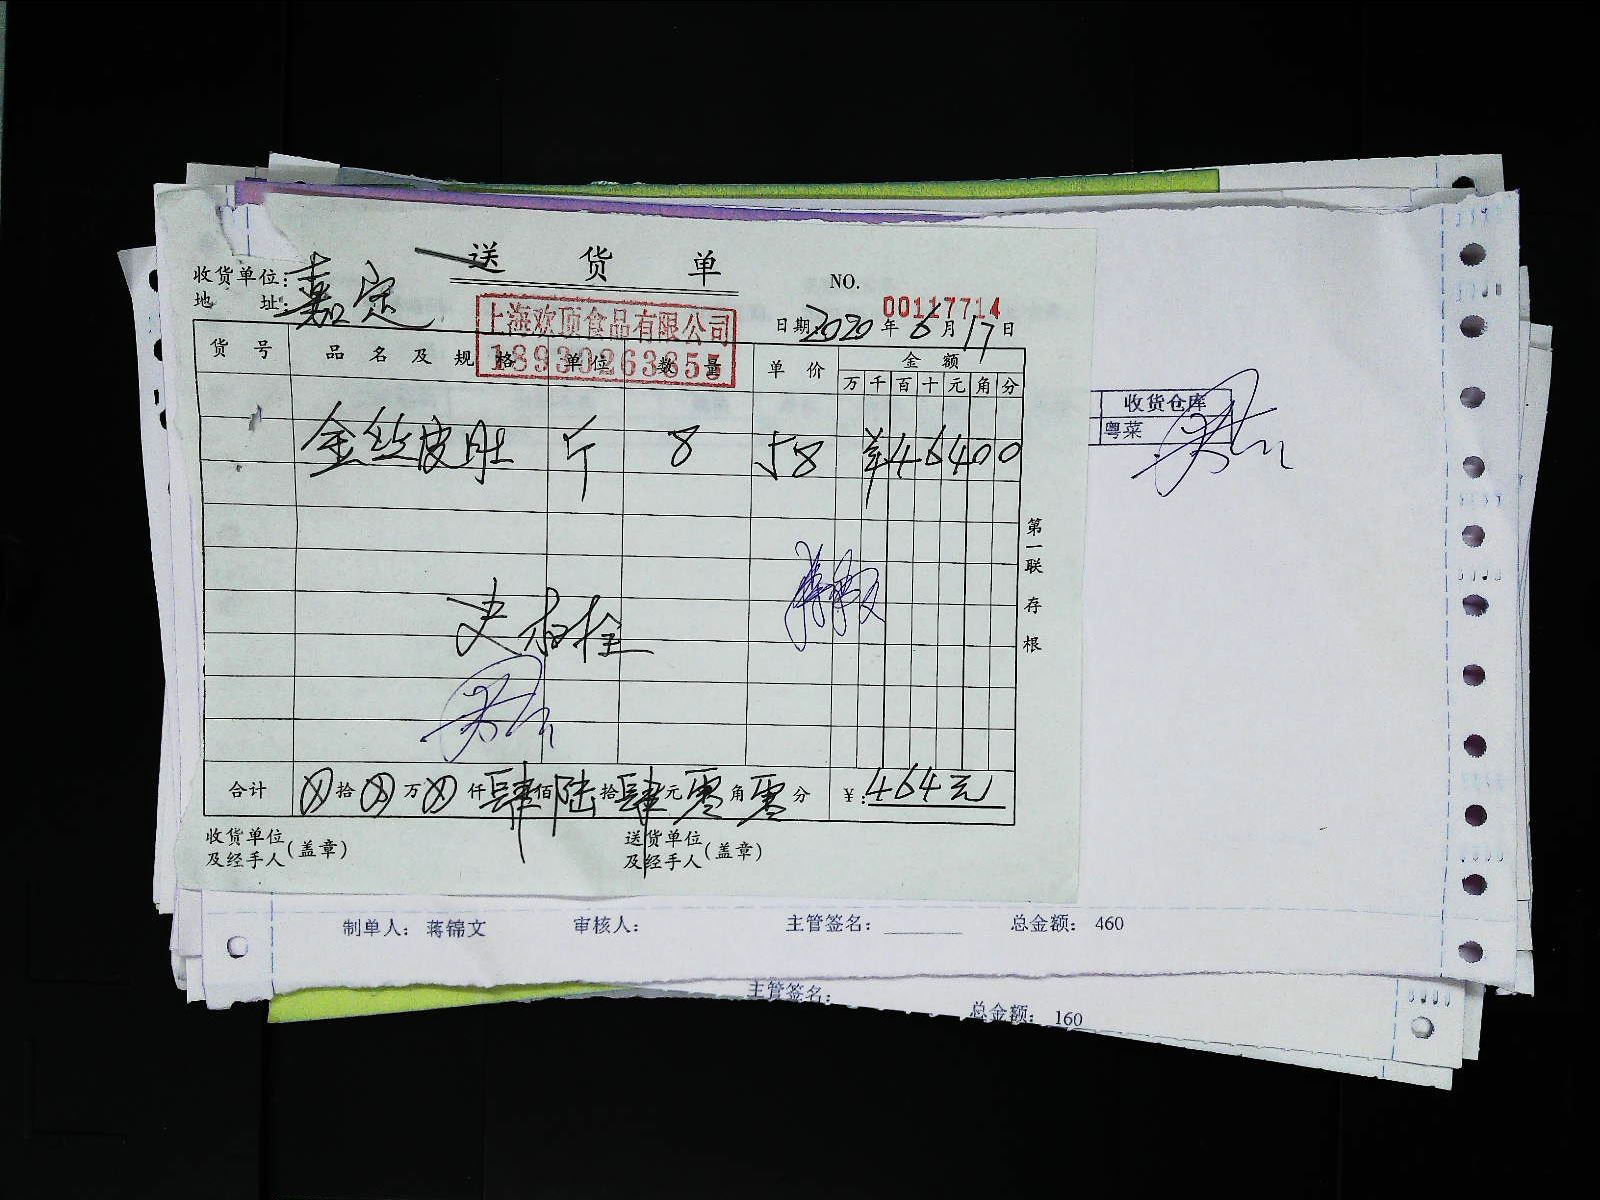 送货单
收货单位:嘉定
地 址:
NO. 00117714
上海欢顶食品有限公司
18930263655
日期 2020 年 6 月 17 日
货号 品名及规格 单位 数量 单价 金额
万 千 百 十 元 角 分
金丝皮肚 斤 8 58 ¥46400
第一联存根
合计 ⊗拾⊗万⊗仟肆佰陆拾肆元零角零分 ¥:464元
收货单位及经手人(盖章) 送货单位及经手人(盖章)
收货仓库
粤菜
制单人: 蒋锦文 审核人: 主管签名: 总金额: 460
主管签名: 总金额: 160